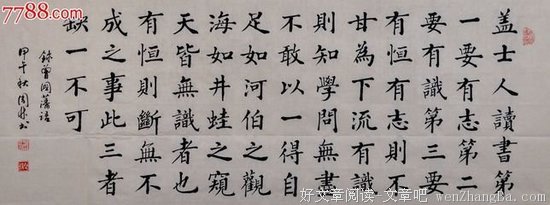 7788.com
盖士人讀書第
一要有志第二
要有識第三要
有恒有志則不
甘為下流有識
則知學問無盡
不敢以一得自
足如河伯之觀
海如井蛙之窺
天皆無識者也
有恒則斷無不
成之事此三者
缺一不可
錄曾國藩語
甲午秋周书
好文章阅读-文章吧
wenZhangBa.com